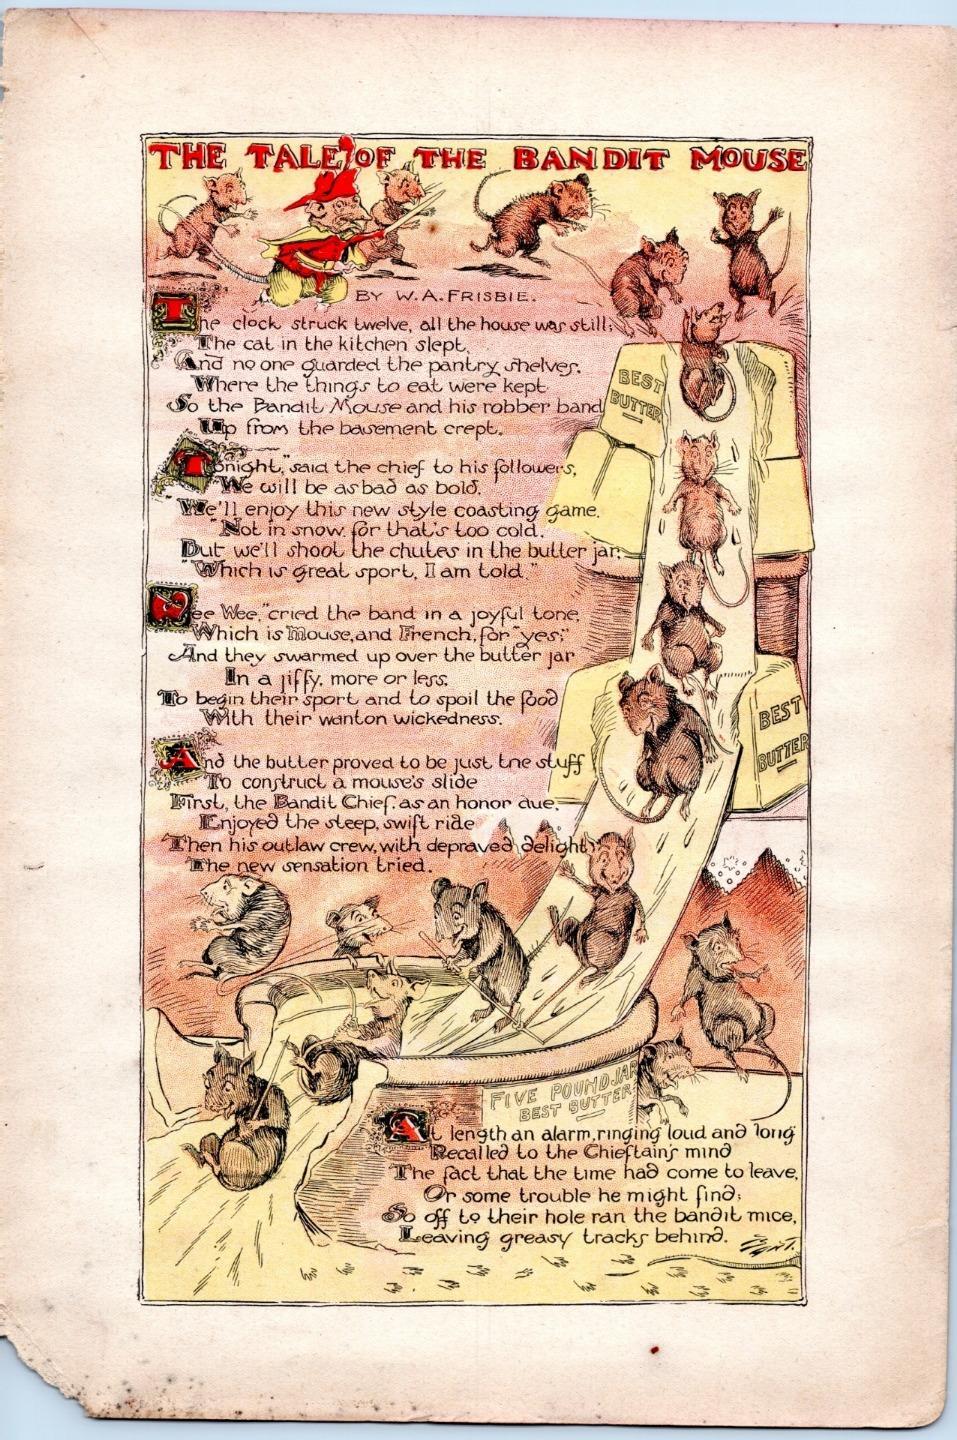 THE TALE OF THE BANDIT MOUSE
BY W.A. FRISBIE.
The clock struck twelve, all the house was still;
The cat in the kitchen slept,
And no one guarded the pantry shelves,
Where the things to eat were kept
So the Bandit Mouse and his robber band
Up from the basement crept.
Tonight," said the chief to his followers,
"We will be as bad as bold.
"We'll enjoy this new style coasting game,
"Not in snow, for that's too cold,
But we'll shoot the chutes in the butter jar,
"Which is great sport, I am told."
Wee Wee," cried the band in a joyful tone,
Which is Mouse, and French, for "yes;"
And they swarmed up over the butter jar
In a jiffy, more or less,
To begin their sport and to spoil the food
With their wanton wickedness.
And the butter proved to be just the stuff
To construct a mouse's slide
First, the Bandit Chief, as an honor due,
Enjoyed the steep, swift ride
Then his outlaw crew, with depraved delight
The new sensation tried.
BEST
BUTTER
BEST
BUTTER
FIVE POUND JAR
BEST BUTTER
At length an alarm, ringing loud and long
Recalled to the Chieftain's mind
The fact that the time had come to leave,
Or some trouble he might find;
So off to their hole ran the bandit mice,
Leaving greasy tracks behind.